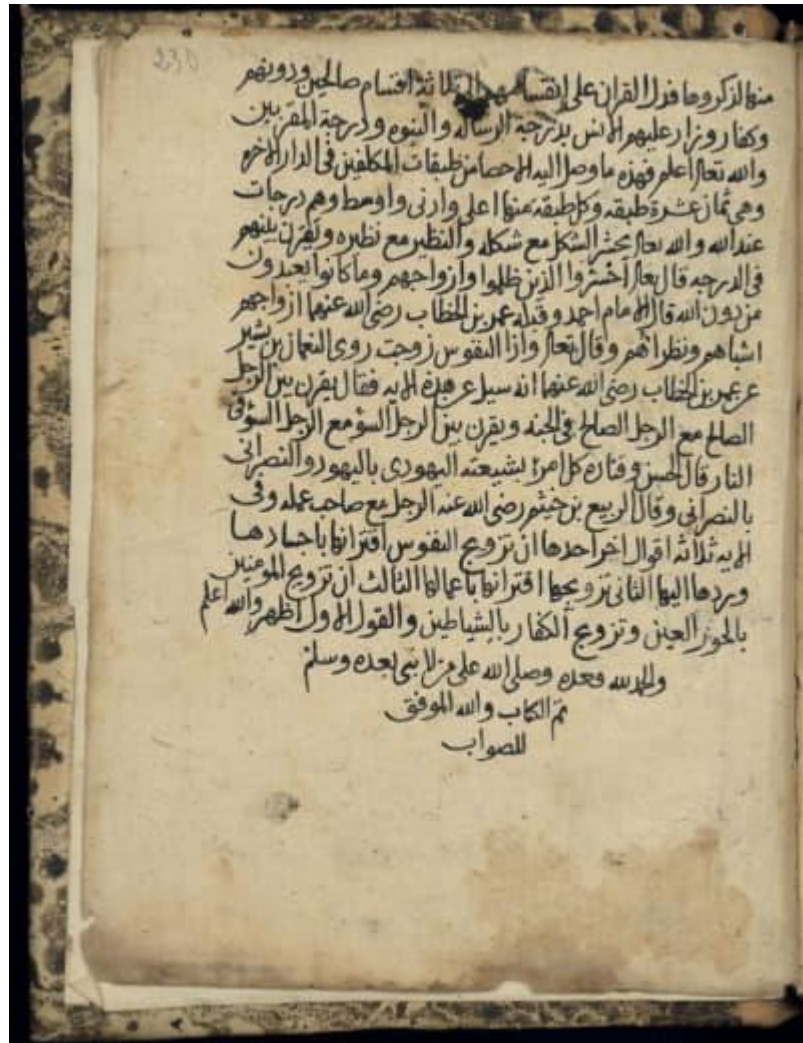 230
منها لذكروها فدل القران على انقسامهم الى ثلاثة اقسام صالحين ودونهم
وكفار وزاد عليهم الانس بدرجة الرساله والنبوه ودرجة المقربين
والله تعالى اعلم فهذه ما وصل اليه الاحصا من طبقات المكلفين فى الدار الاخره
وهى ثمان عشرة طبقه وكل طبقه منها اعلى وادنى واوسط وهم درجات
عند الله والله تعالى يحشر الشكل مع شكله والنظير مع نظيره ويقرن بينهم
فى الدرجه قال تعالى احشروا الذين ظلموا وازواجهم وما كانوا يعبدون
من دون الله قال الامام احمد وقبله عمر بن الخطاب رضى الله عنهما ازواجهم
اشباههم ونظراهم وقال تعالى واذا النفوس زوجت روى النعمان بن بشير
عن عمر بن الخطاب رضى الله عنهما انه سيل عن هذه الايه فقال يقرن بين الرجل
الصالح مع الرجل الصالح فى الجنه ويقرن بين الرجل السوء مع الرجل السوء فى
النار قال الحسن وقتاده كل امرئ بشيعته اليهودى باليهود والنصرانى
بالنصرانى وقال الربيع بن خيثم رضى الله عنه الرجل مع صاحب عمله وفى
الايه ثلاثه اقوال اخر احدها ان تزويج النفوس اقترانها باجسادها
وردها اليها الثانى تزويجها اقترانها باعمالها الثالث ان تزويج المومنين
بالحور العين وتزويج الكفار بالشياطين والقول الاول اظهر والله اعلم
والحمد لله وحده وصلى الله على من لا نبى بعده وسلم
تم الكتاب والله الموفق
للصواب